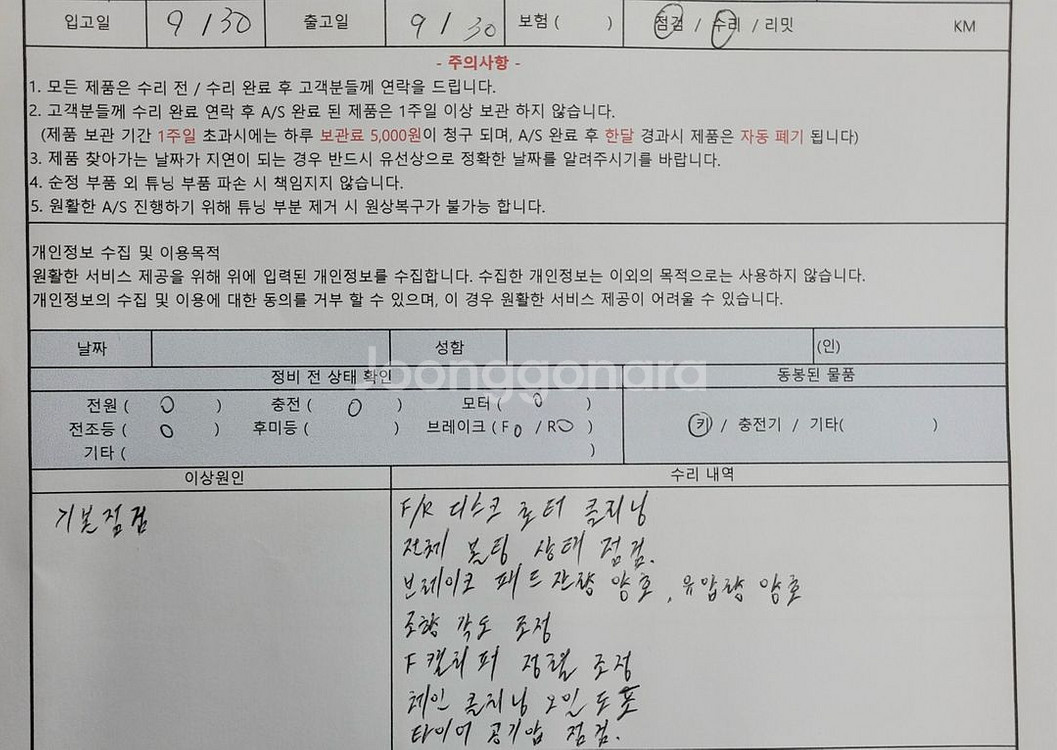 입고일 9 / 30 출고일 9 / 30 보험 ( ) 점검 / 수리 / 리밋 KM
- 주의사항 -
1. 모든 제품은 수리 전 / 수리 완료 후 고객분들께 연락을 드립니다.
2. 고객분들께 수리 완료 연락 후 A/S 완료 된 제품은 1주일 이상 보관 하지 않습니다.
(제품 보관 기간 1주일 초과시에는 하루 보관료 5,000원이 청구 되며, A/S 완료 후 한달 경과시 제품은 자동 폐기 됩니다)
3. 제품 찾아가는 날짜가 지연이 되는 경우 반드시 유선상으로 정확한 날짜를 알려주시기를 바랍니다.
4. 순정 부품 외 튜닝 부품 파손 시 책임지지 않습니다.
5. 원활한 A/S 진행하기 위해 튜닝 부분 제거 시 원상복구가 불가능 합니다.
개인정보 수집 및 이용목적
원활한 서비스 제공을 위해 위에 입력된 개인정보를 수집합니다. 수집한 개인정보는 이외의 목적으로는 사용하지 않습니다.
개인정보의 수집 및 이용에 대한 동의를 거부 할 수 있으며, 이 경우 원활한 서비스 제공이 어려울 수 있습니다.
날짜 성함 (인)
Joonggonara
정비 전 상태 확인 동봉된 물품
전원 ( O ) 충전 ( O ) 모터 ( O )
전조등 ( O ) 후미등 ( ) 브레이크 ( F O / R O ) 키 / 충전기 / 기타( )
기타 ( )
이상원인 수리 내역
기본점검
F/R 디스크 로터 클리닝
전체 볼팅 상태 점검.
브레이크 패드 잔량 양호, 유압량 양호
조향 각도 조정
F 캘리퍼 정렬 조정
체인 클리닝 오일 도포
타이어 공기압 점검.